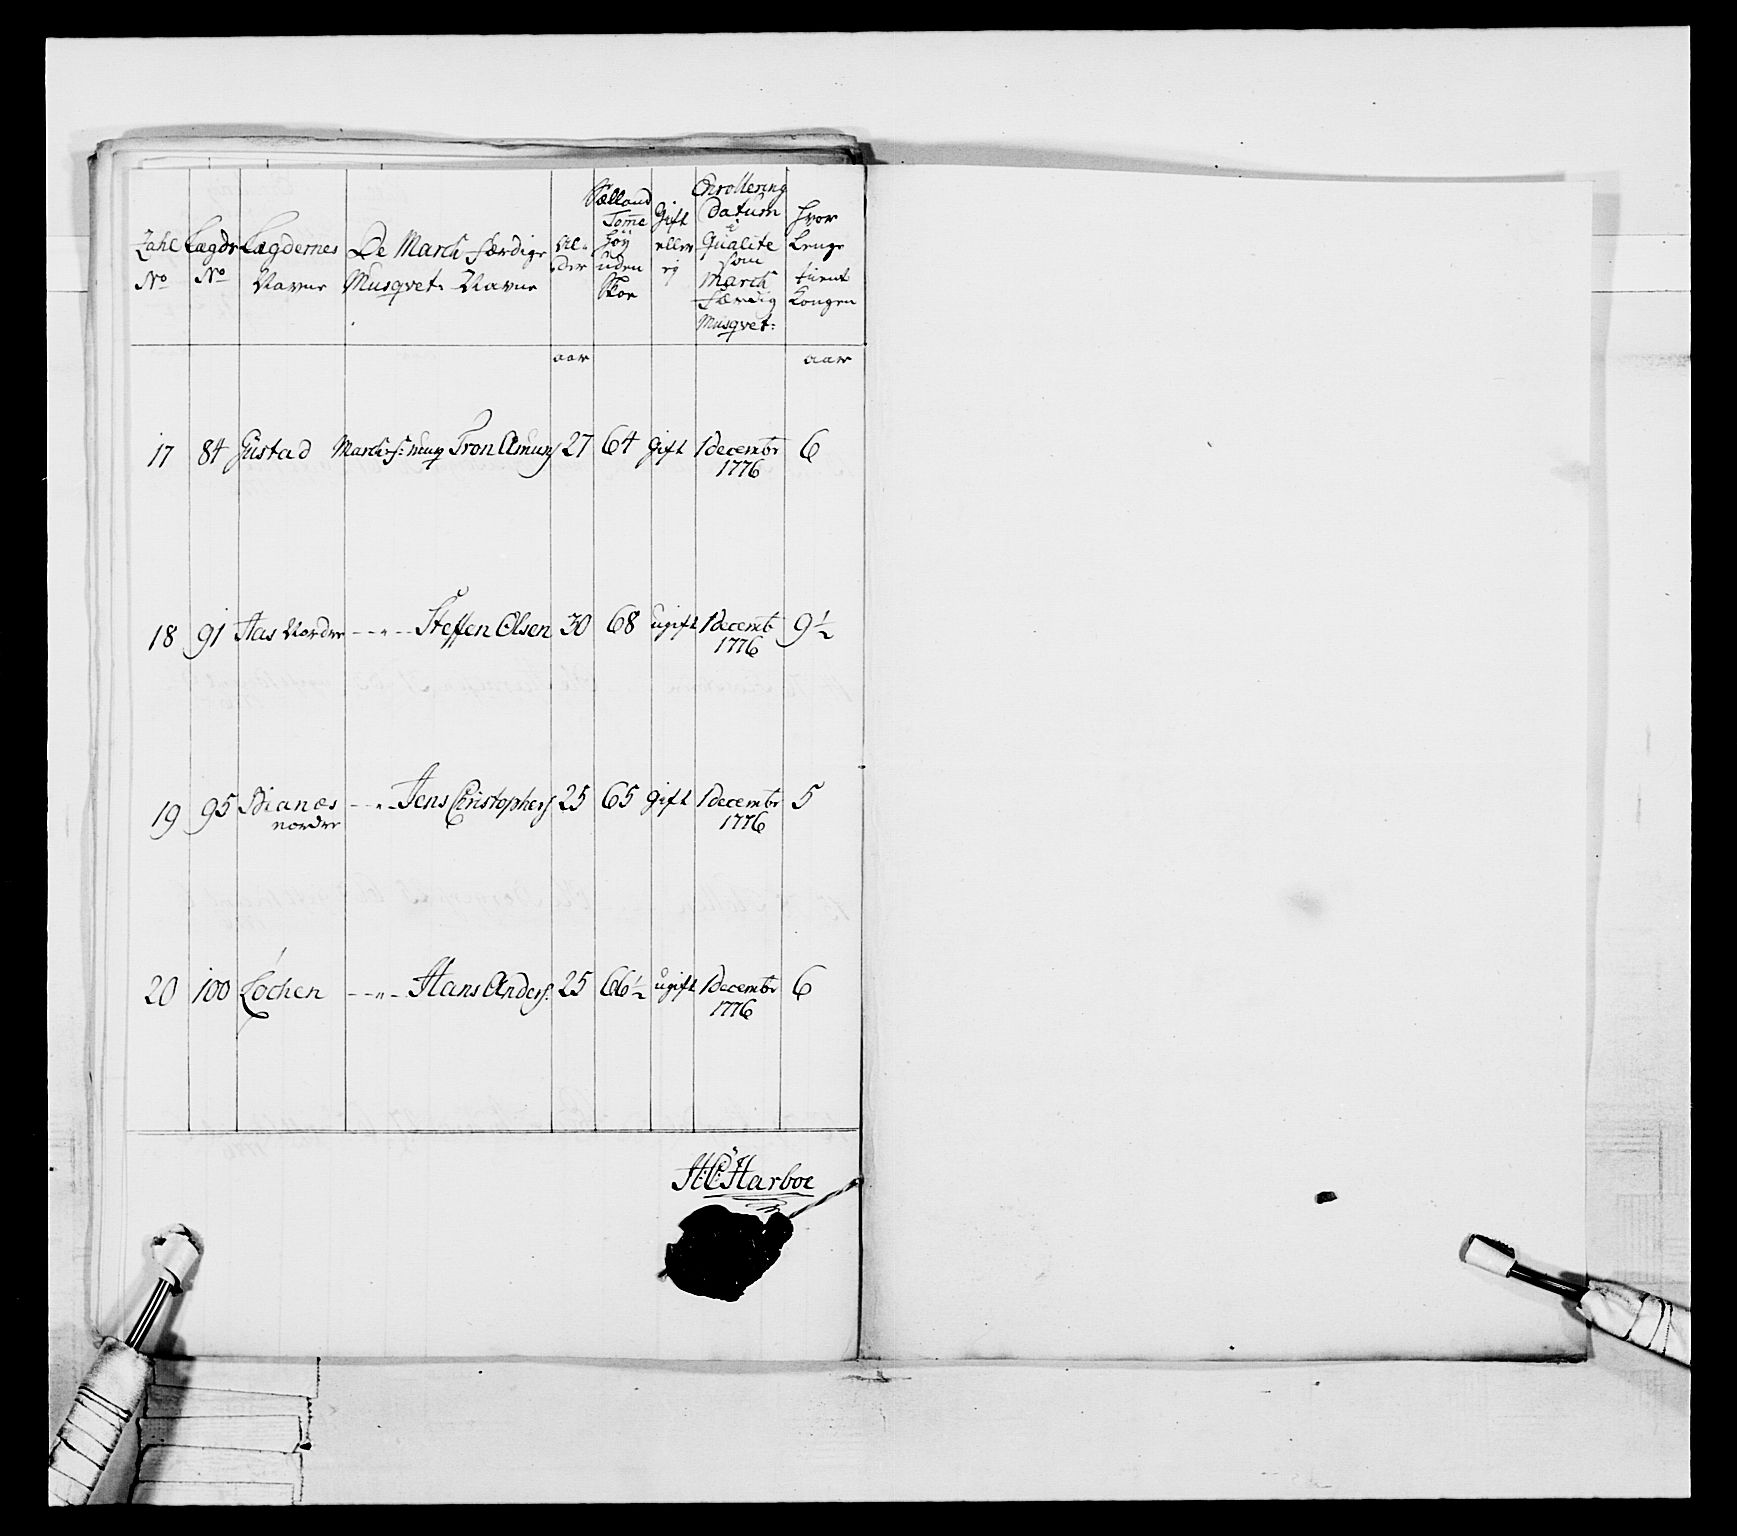 Zahl No | Lægds No | Lægdernes Navne | De March færdige Musqvet: Navne | Al:der | Siælland Tom̄e höÿ uden Skoe | Gift eller eÿ | Enrollering Datum i Qualite som March færdig Musqvet: | Hvor Lenge tient Kongen
aar | aar
17 | 84 | Gustad | March f: Musq Tron Amunds | 27 | 64 | gift | 1 Decembr 1776 | 6
18 | 91 | Aas Nordre | - - " - - Steffen Olsen | 30 | 68 | ugift | 1 Decemb 1776 | 9½
19 | 95 | Bianæs nordre | - - " - Jens Christophers | 25 | 65 | gift | 1 Decembr 1776 | 5
20 | 100 | Løchen | - - " - Hans Anders: | 25 | 66½ | ugift | 1 Decembr 1776 | 6
H:C: Harboe